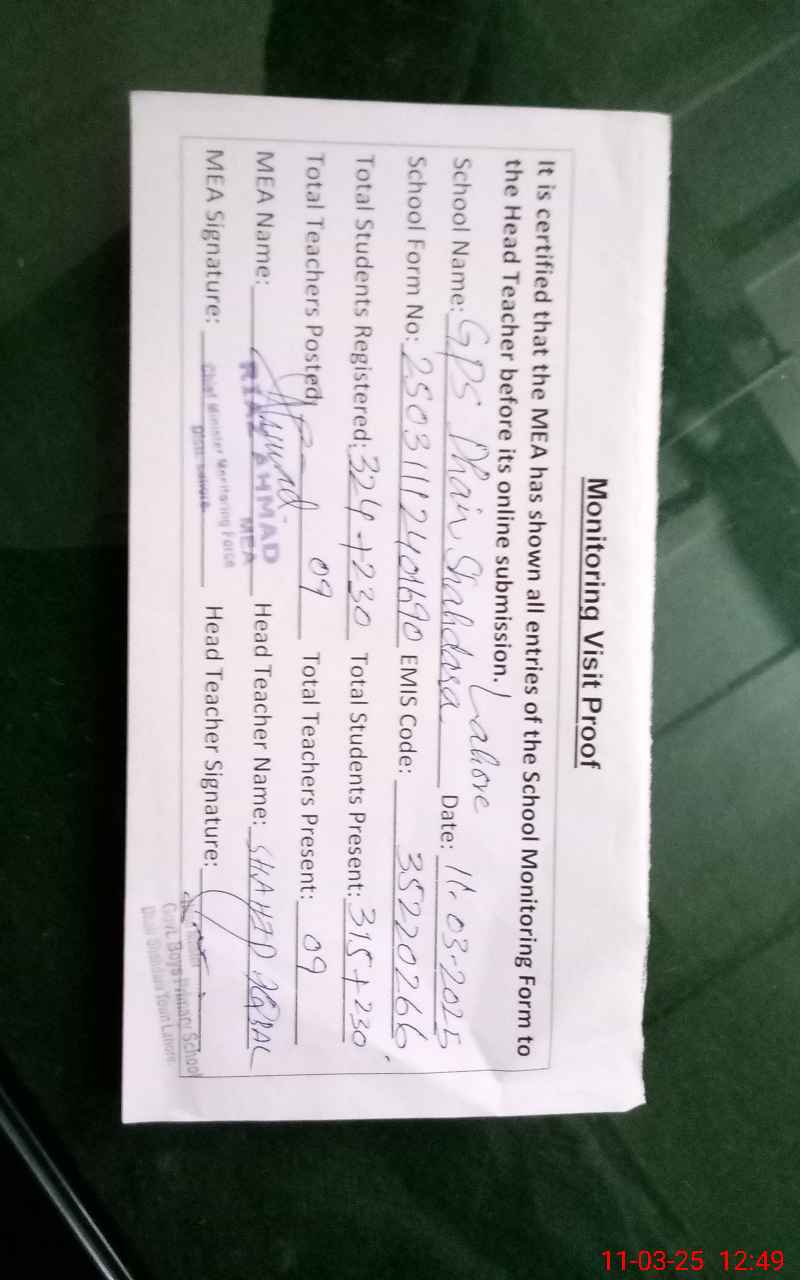 Monitoring Visit Proof
It is certified that the MEA has shown all entries of the School Monitoring Form to
the Head Teacher before its online submission.
School Name: GPS Dhair Shahdara Lahore Date: 11-03-2025
School Form No: 25031112401690 EMIS Code: 35220266
Total Students Registered: 324+230 Total Students Present: 315+230
Total Teachers Posted: 09 Total Teachers Present: 09
MEA Name: RIAZ AHMAD Head Teacher Name: SHAHZAD IQBAL
MEA
MEA Signature: Head Teacher Signature:
Chief Minister Monitoring Force
Distt: Lahore
Govt. Boys Primary School
Town Lahore
11-03-25 12:49